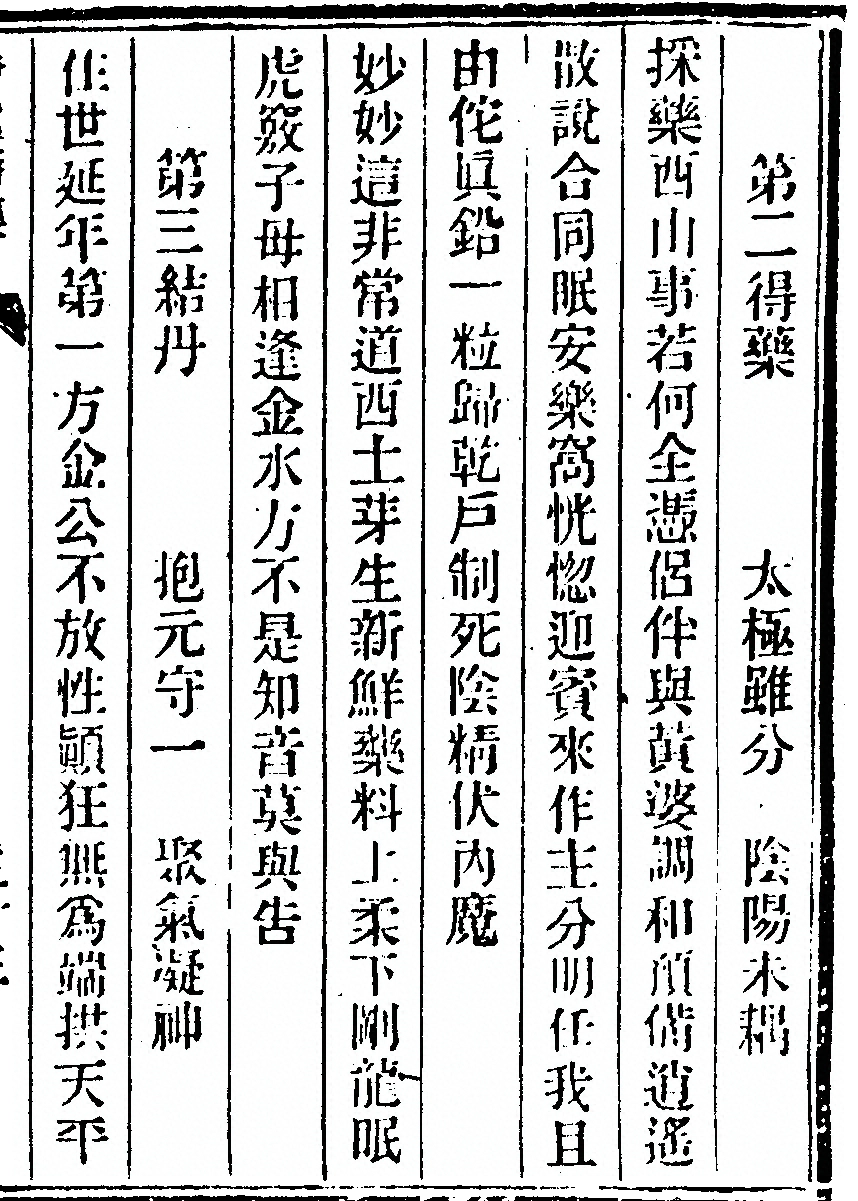 第二得藥 太極雖分 陰陽未耦
採藥西山事若何全憑侶伴與黃婆調和預備逍遙
散說合同眠安樂窩恍惚迎賓來作主分明任我且
由佗眞鉛一粒歸乾戶制死陰精伏內魔
妙妙這非常道西土芽生新鮮藥料上柔下剛龍眠
虎䈥子母相逢金水方不是知音莫與告
第三結丹 抱元守一 聚氣凝神
住世延年第一方金公不放性顚狂無爲端拱天平